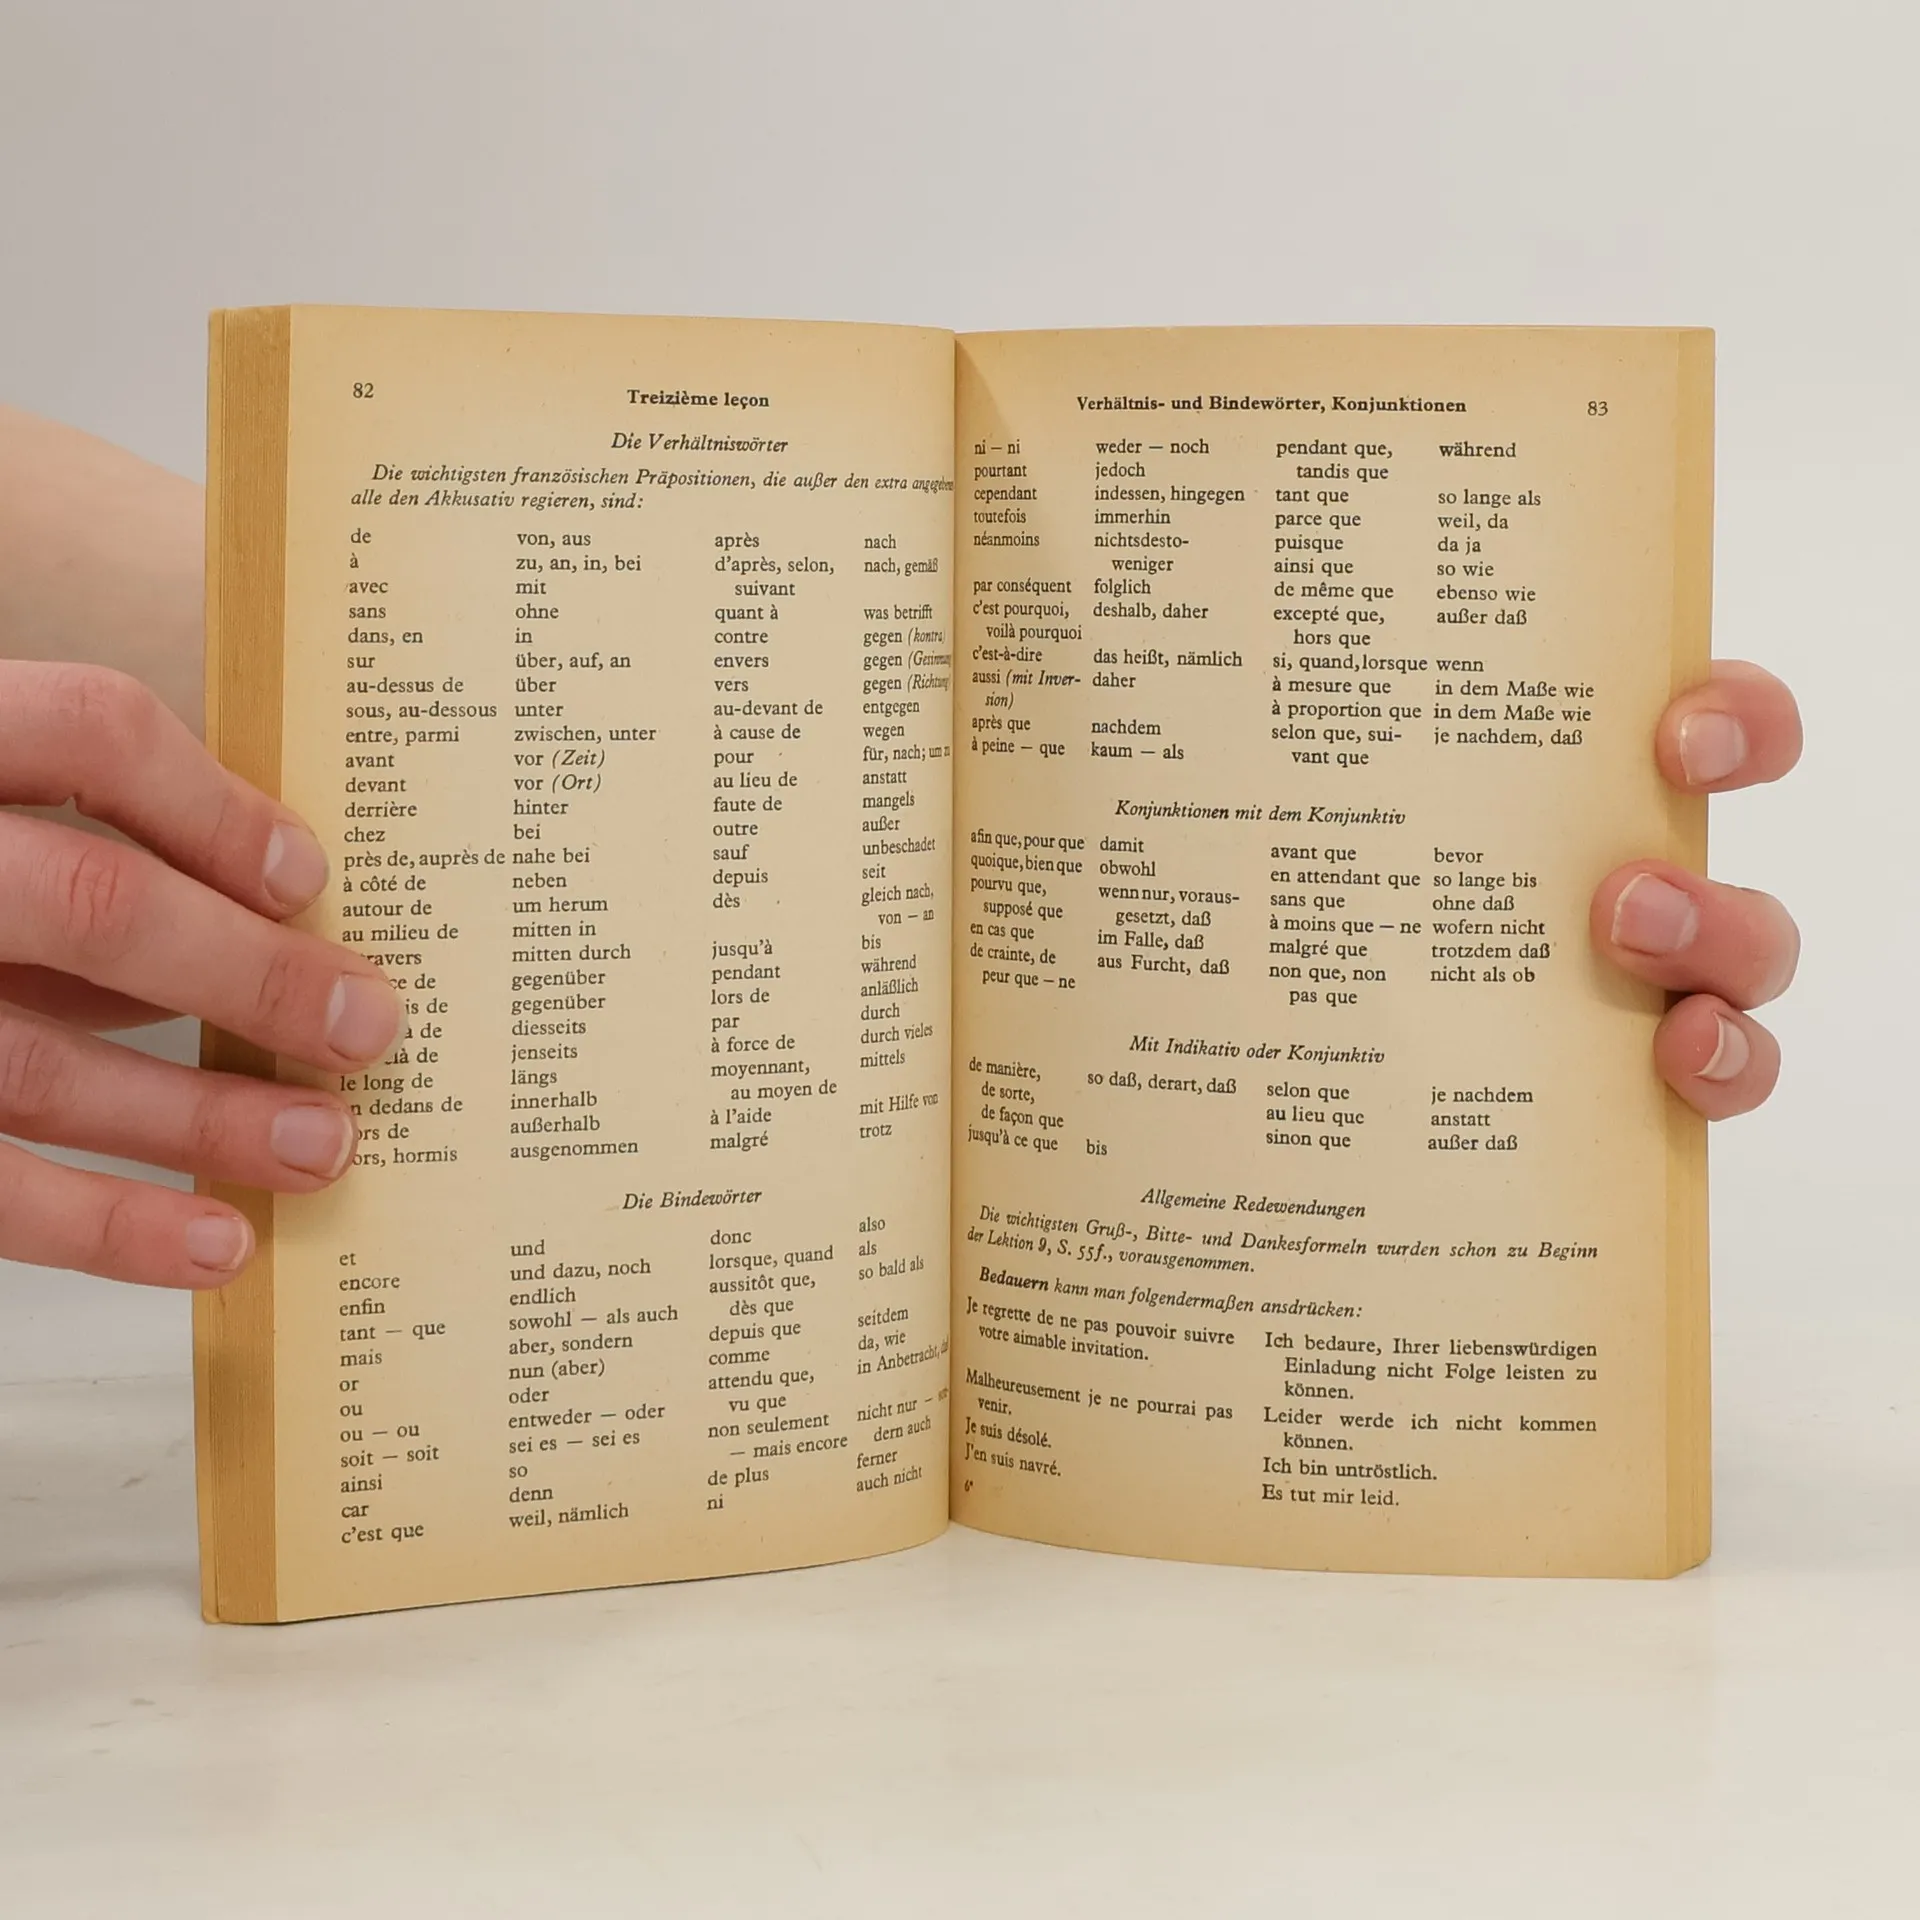 82
Treizième leçon
Die Verhältniswörter
Die wichtigsten französischen Präpositionen, die außer den extra
alle den Akkusativ regieren, sind:
de von, aus après nach
à zu, an, in, bei d'après, selon, nach, gemäß
avec mit suivant
sans ohne quant à was betrifft
dans, en in contre gegen (kontra)
sur über, auf, an envers gegen
au-dessus de über vers gegen (Richtung)
sous, au-dessous unter au-devant de entgegen
entre, parmi zwischen, unter à cause de wegen
avant vor (Zeit) pour für, nach; um
devant vor (Ort) au lieu de anstatt
derrière hinter faute de mangels
chez bei outre außer
près de, auprès de nahe bei sauf unbeschadet
à côté de neben depuis seit
autour de um herum dès gleich nach,
au milieu de mitten in von – an
mitten durch jusqu'à bis
de gegenüber pendant während
de gegenüber lors de anläßlich
de diesseits par durch
de jenseits à force de durch vieles
le long de längs moyennant, mittels
dedans de innerhalb au moyen de
de außerhalb à l'aide mit Hilfe von
hormis ausgenommen malgré trotz
Die Bindewörter
et und donc also
encore und dazu, noch lorsque, quand als
enfin endlich aussitôt que, so bald als
tant — que sowohl — als auch dès que
mais aber, sondern depuis que seitdem
or nun (aber) comme da, wie
ou oder attendu que, in Anbetracht,
ou — ou entweder — oder vu que
soit — soit sei es — sei es non seulement nicht nur –
ainsi so — mais encore dern auch
car denn de plus ferner
c'est que weil, nämlich ni auch nicht
Verhältnis- und Bindewörter, Konjunktionen
83
ni – ni weder — noch pendant que, während
pourtant jedoch tandis que
cependant indessen, hingegen tant que so lange als
toutefois immerhin parce que weil, da
néanmoins nichtsdesto- puisque da ja
weniger ainsi que so wie
par conséquent folglich de même que ebenso wie
c'est pourquoi, deshalb, daher excepté que, außer daß
voilà pourquoi hors que
c'est-à-dire das heißt, nämlich si, quand, lorsque wenn
aussi (mit Inver- daher à mesure que in dem Maße wie
sion) à proportion que in dem Maße wie
après que nachdem selon que, sui- je nachdem, daß
à peine – que kaum — als vant que
Konjunktionen mit dem Konjunktiv
afin que, pour que damit avant que bevor
quoique, bien que obwohl en attendant que so lange bis
pourvu que, wenn nur, voraus- sans que ohne daß
supposé que gesetzt, daß à moins que — ne wofern nicht
en cas que im Falle, daß malgré que trotzdem daß
de crainte, de aus Furcht, daß non que, non nicht als ob
peur que – ne pas que
Mit Indikativ oder Konjunktiv
de manière, so daß, derart, daß selon que je nachdem
de sorte, au lieu que anstatt
de façon que sinon que außer daß
jusqu'à ce que bis
Allgemeine Redewendungen
Die wichtigsten Gruß-, Bitte- und Dankesformeln wurden schon zu Beginn
der Lektion 9, S. 55f., vorausgenommen.
Bedauern kann man folgendermaßen ansdrücken:
Je regrette de ne pas pouvoir suivre Ich bedaure, Ihrer liebenswürdigen
votre aimable invitation. Einladung nicht Folge leisten zu
können.
Malheureusement je ne pourrai pas Leider werde ich nicht kommen
venir. können.
Je suis désolé. Ich bin untröstlich.
J'en suis navré. Es tut mir leid.
6*